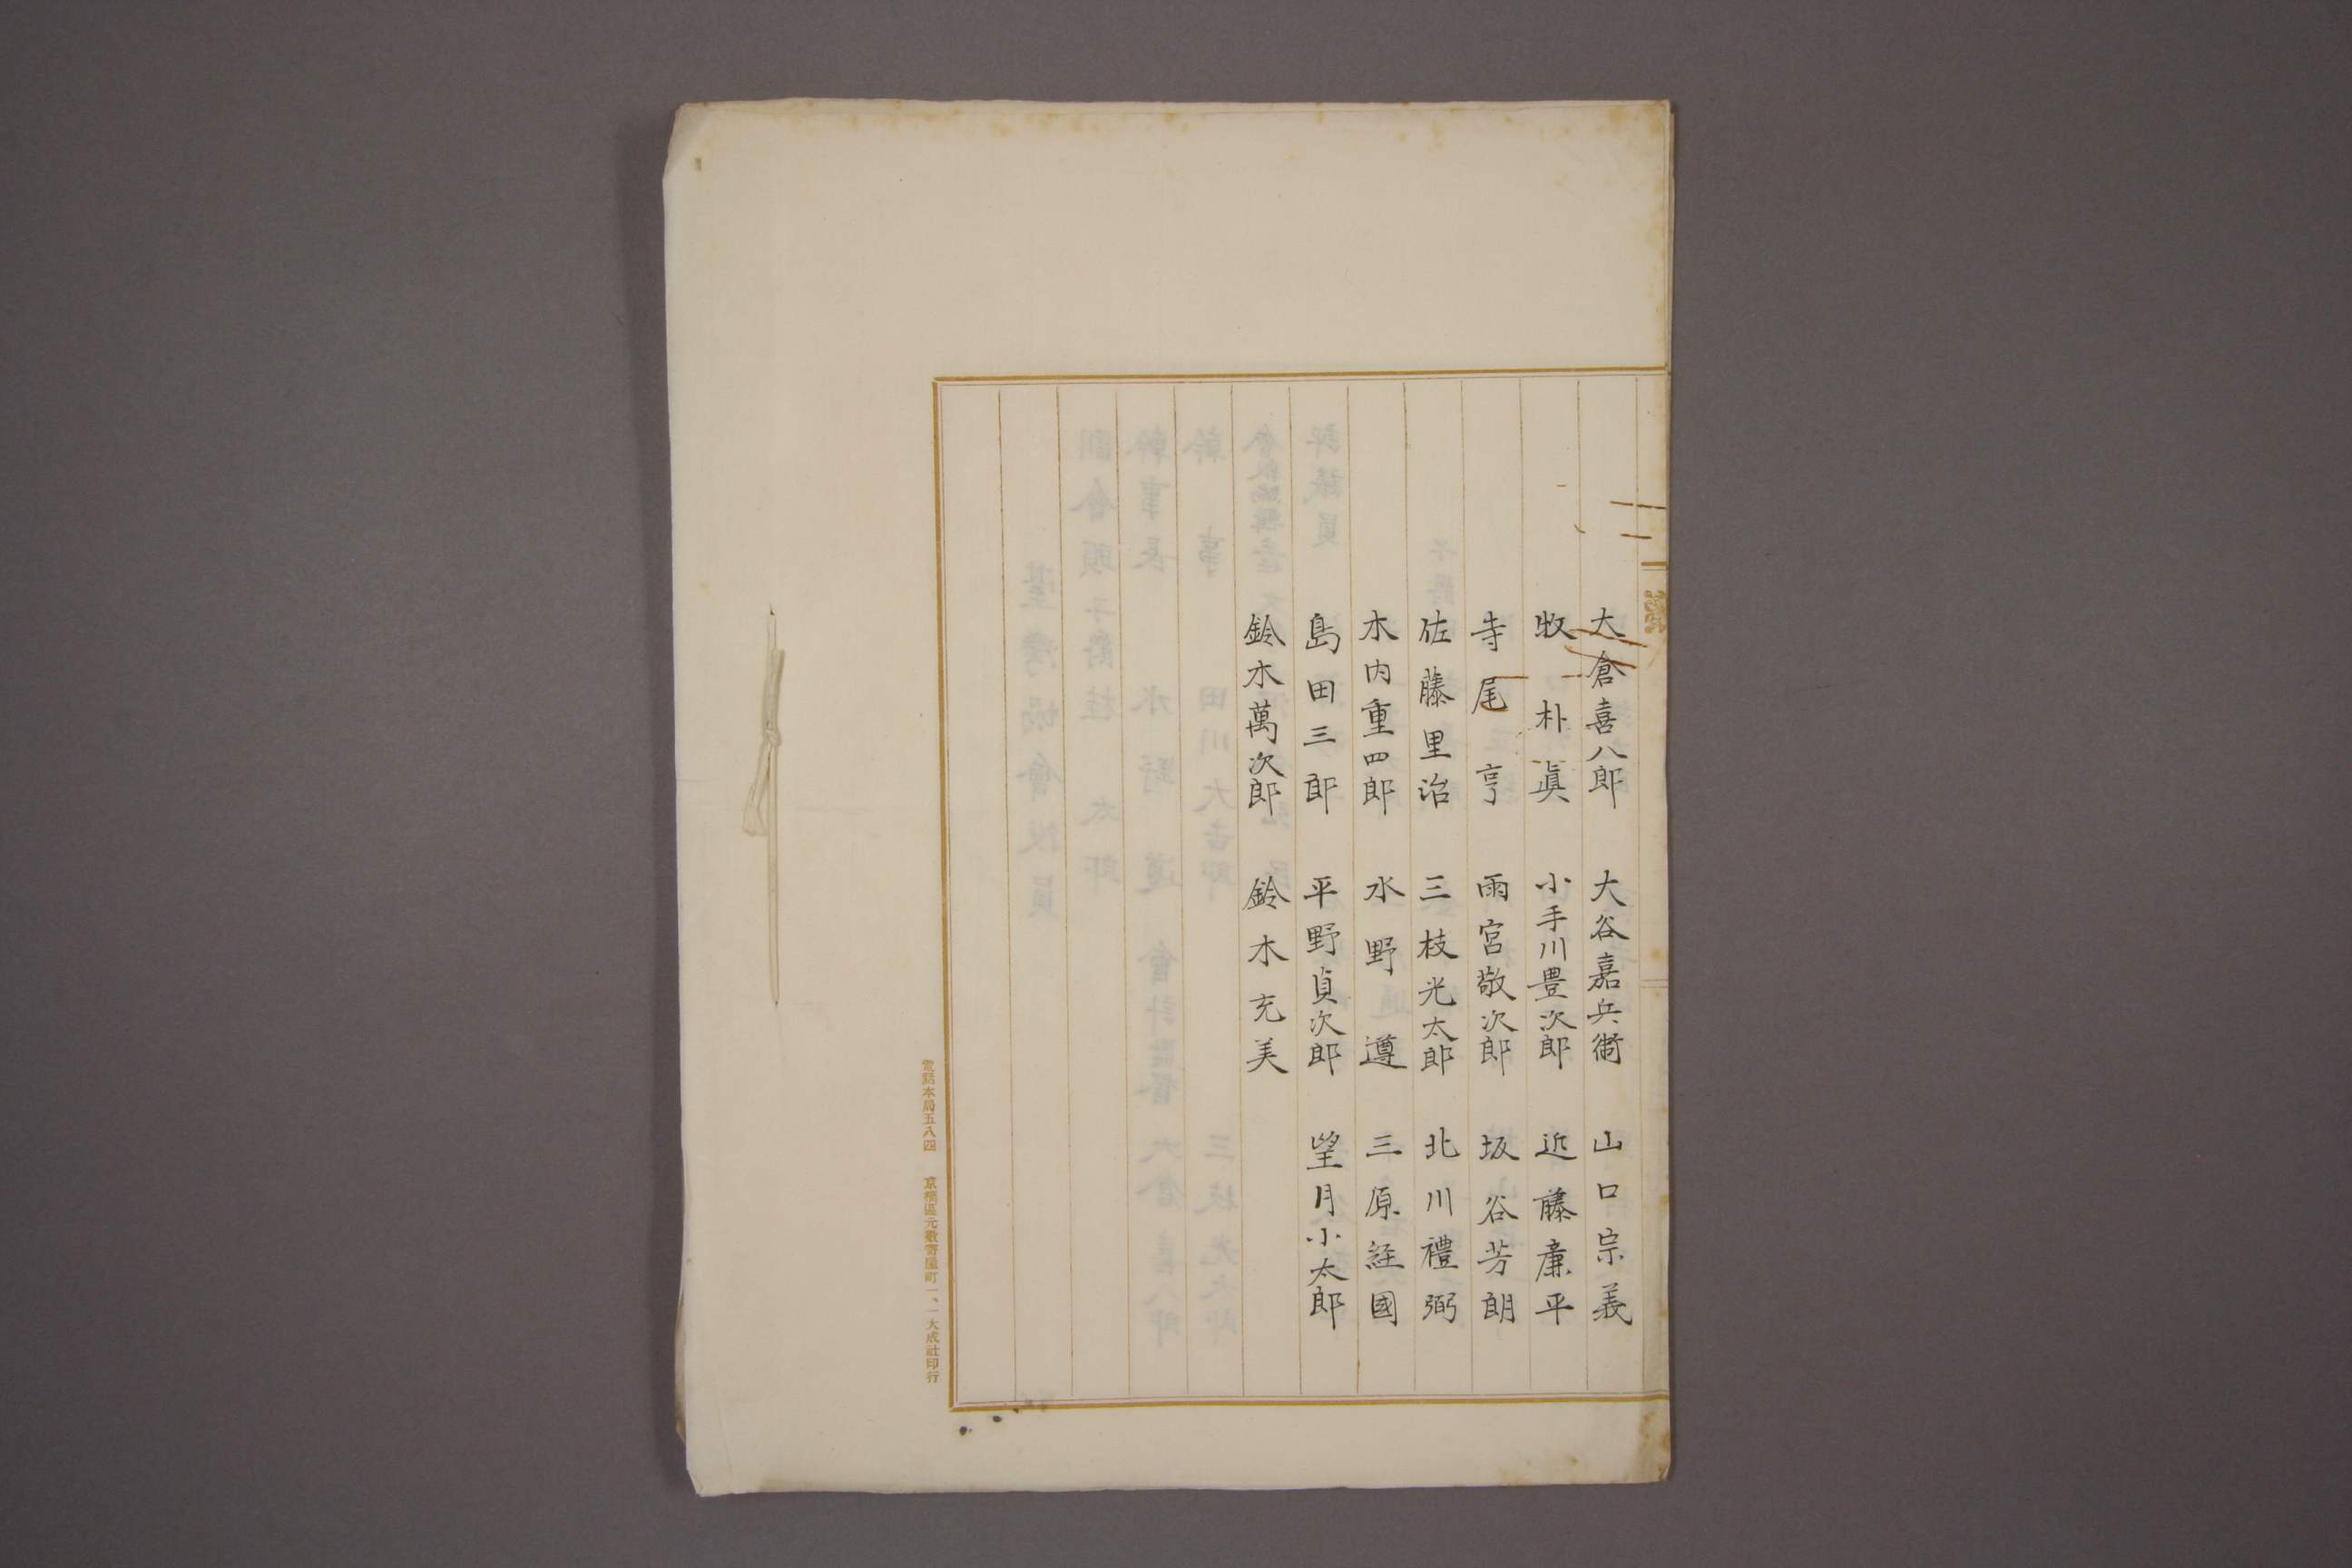 大倉喜八郎　大谷嘉兵衛　山口宗義
牧朴眞　小手川豊次郎　近藤廉平
寺尾亨　雨宮敬次郎　坂谷芳朗
佐藤里治　三枝光太郎　北川禮弼
木内重四郎　水野遵　三原経國
島田三郎　平野貞次郎　望月小太郎
鈴木萬次郎　鈴木充美
電話本局五八四　京橋區元數寄屋町一、一大成社印行